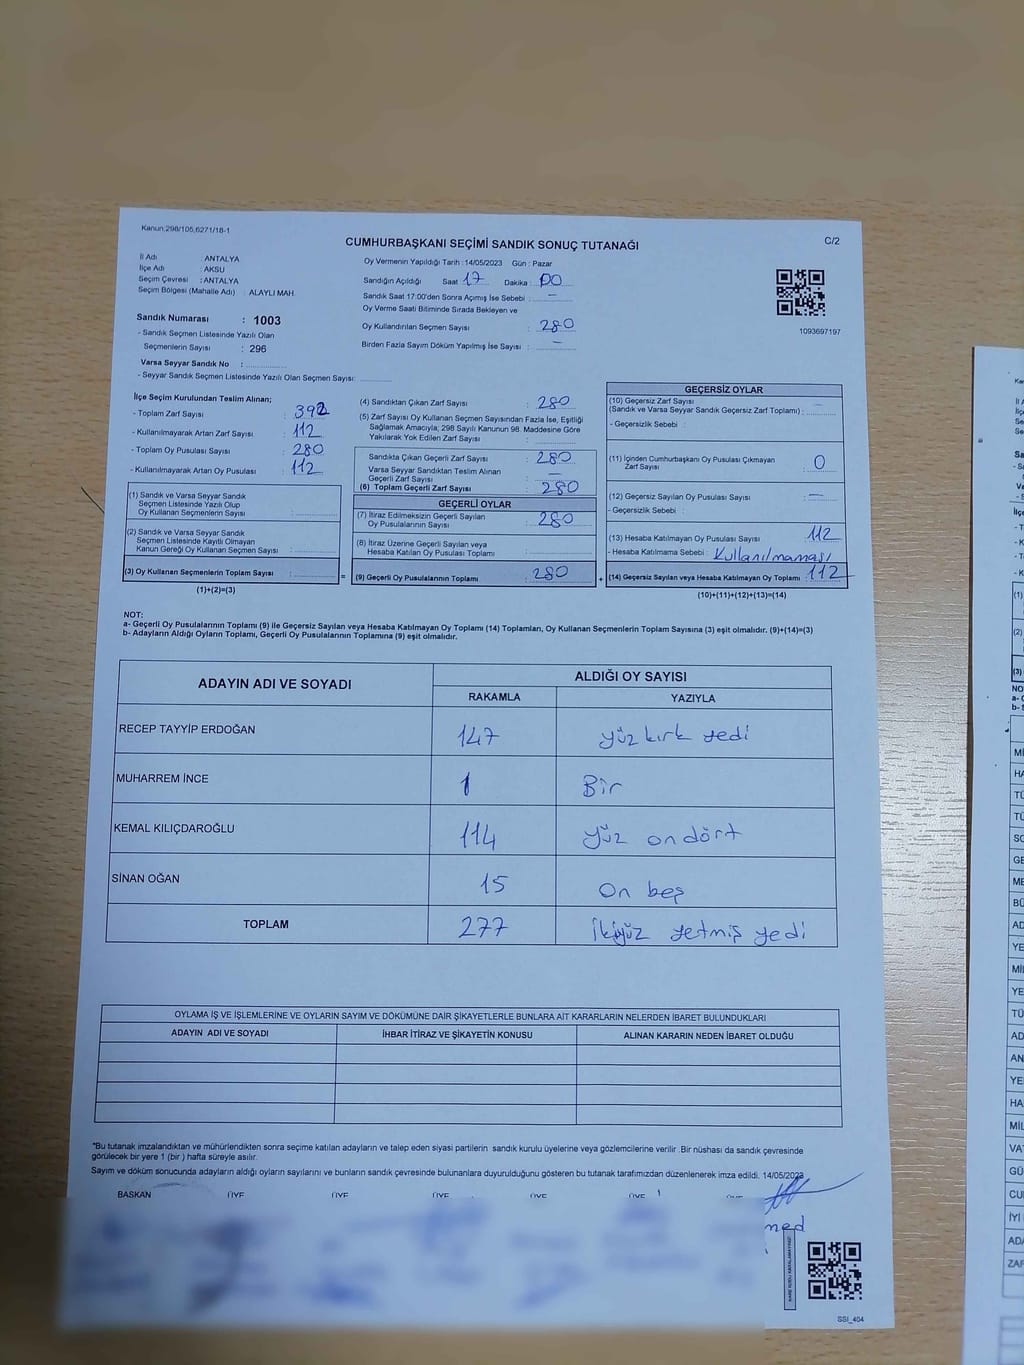 Kanun:298/105,6271/18-1
CUMHURBAŞKANI SEÇİMİ SANDIK SONUÇ TUTANAĞI
C/2
İl Adı : ANTALYA
İlçe Adı : AKSU
Seçim Çevresi : ANTALYA
Seçim Bölgesi (Mahalle Adı) : ALAYLI MAH.
Sandık Numarası : 1003
- Sandık Seçmen Listesinde Yazılı Olan
Seçmenlerin Sayısı : 296
Varsa Seyyar Sandık No :
- Seyyar Sandık Seçmen Listesinde Yazılı Olan Seçmen Sayısı:
Oy Vermenin Yapıldığı Tarih :14/05/2023 Gün : Pazar
Sandığın Açıldığı Saat 17 Dakika : 00
Sandık Saat 17:00'den Sonra Açımış İse Sebebi : —
Oy Verme Saati Bitiminde Sırada Bekleyen ve
Oy Kullandırılan Seçmen Sayısı : 280
Birden Fazla Sayım Döküm Yapılmış İse Sayısı : —
1093697197
İlçe Seçim Kurulundan Teslim Alınan;
- Toplam Zarf Sayısı : 392
- Kullanılmayarak Artan Zarf Sayısı : 112
- Toplam Oy Pusulası Sayısı : 280
- Kullanılmayarak Artan Oy Pusulası : 112
(1) Sandık ve Varsa Seyyar Sandık
Seçmen Listesinde Yazılı Olup
Oy Kullanan Seçmenlerin Sayısı :
(2) Sandık ve Varsa Seyyar Sandık
Seçmen Listesinde Kayıtlı Olmayan
Kanun Gereği Oy Kullanan Seçmen Sayısı :
(3) Oy Kullanan Seçmenlerin Toplam Sayısı :
(1)+(2)=(3)
(4) Sandıktan Çıkan Zarf Sayısı : 280
(5) Zarf Sayısı Oy Kullanan Seçmen Sayısından Fazla İse, Eşitliği
Sağlamak Amacıyla; 298 Sayılı Kanunun 98. Maddesine Göre
Yakılarak Yok Edilen Zarf Sayısı :
Sandıkta Çıkan Geçerli Zarf Sayısı : 280
Varsa Seyyar Sandıktan Teslim Alınan
Geçerli Zarf Sayısı : —
(6) Toplam Geçerli Zarf Sayısı : 280
GEÇERLİ OYLAR
(7) İtiraz Edilmeksizin Geçerli Sayılan
Oy Pusulalarının Sayısı : 280
(8) İtiraz Üzerine Geçerli Sayılan veya
Hesaba Katılan Oy Pusulası Toplamı :
= (9) Geçerli Oy Pusulalarının Toplamı : 280 +
GEÇERSİZ OYLAR
(10) Geçersiz Zarf Sayısı
(Sandık ve Varsa Seyyar Sandık Geçersiz Zarf Toplamı) : —
- Geçersizlik Sebebi :
(11) İçinden Cumhurbaşkanı Oy Pusulası Çıkmayan
Zarf Sayısı : 0
(12) Geçersiz Sayılan Oy Pusulası Sayısı : —
- Geçersizlik Sebebi :
(13) Hesaba Katılmayan Oy Pusulası Sayısı : 112
- Hesaba Katılmama Sebebi : Kullanılmaması
(14) Geçersiz Sayılan veya Hesaba Katılmayan Oy Toplamı : 112
(10)+(11)+(12)+(13)=(14)
NOT:
a- Geçerli Oy Pusulalarının Toplamı (9) ile Geçersiz Sayılan veya Hesaba Katılmayan Oy Toplamı (14) Toplamları, Oy Kullanan Seçmenlerin Toplam Sayısına (3) eşit olmalıdır. (9)+(14)=(3)
b- Adayların Aldığı Oyların Toplamı, Geçerli Oy Pusulalarının Toplamına (9) eşit olmalıdır.
ADAYIN ADI VE SOYADI
ALDIĞI OY SAYISI
RAKAMLA YAZIYLA
RECEP TAYYİP ERDOĞAN 147 yüz kırk yedi
MUHARREM İNCE 1 Bir
KEMAL KILIÇDAROĞLU 114 yüz on dört
SİNAN OĞAN 15 On beş
TOPLAM 277 ikiyüz yetmiş yedi
OYLAMA İŞ VE İŞLEMLERİNE VE OYLARIN SAYIM VE DÖKÜMÜNE DAİR ŞİKAYETLERLE BUNLARA AİT KARARLARIN NELERDEN İBARET BULUNDUKLARI
ADAYIN ADI VE SOYADI İHBAR İTİRAZ VE ŞİKAYETİN KONUSU ALINAN KARARIN NEDEN İBARET OLDUĞU
*Bu tutanak imzalandıktan ve mühürlendikten sonra seçime katılan adayların ve talep eden siyasi partilerin sandık kurulu üyelerine veya gözlemcilerine verilir .Bir nüshası da sandık çevresinde
görülecek bir yere 1 (bir ) hafta süreyle asılır.
Sayım ve döküm sonucunda adayların aldığı oyların sayılarını ve bunların sandık çevresinde bulunanlara duyurulduğunu gösteren bu tutanak tarafımızdan düzenlenerek imza edildi. 14/05/2023
BAŞKAN ÜYE ÜYE ÜYE ÜYE ÜYE ÜYE
med
SSI_404